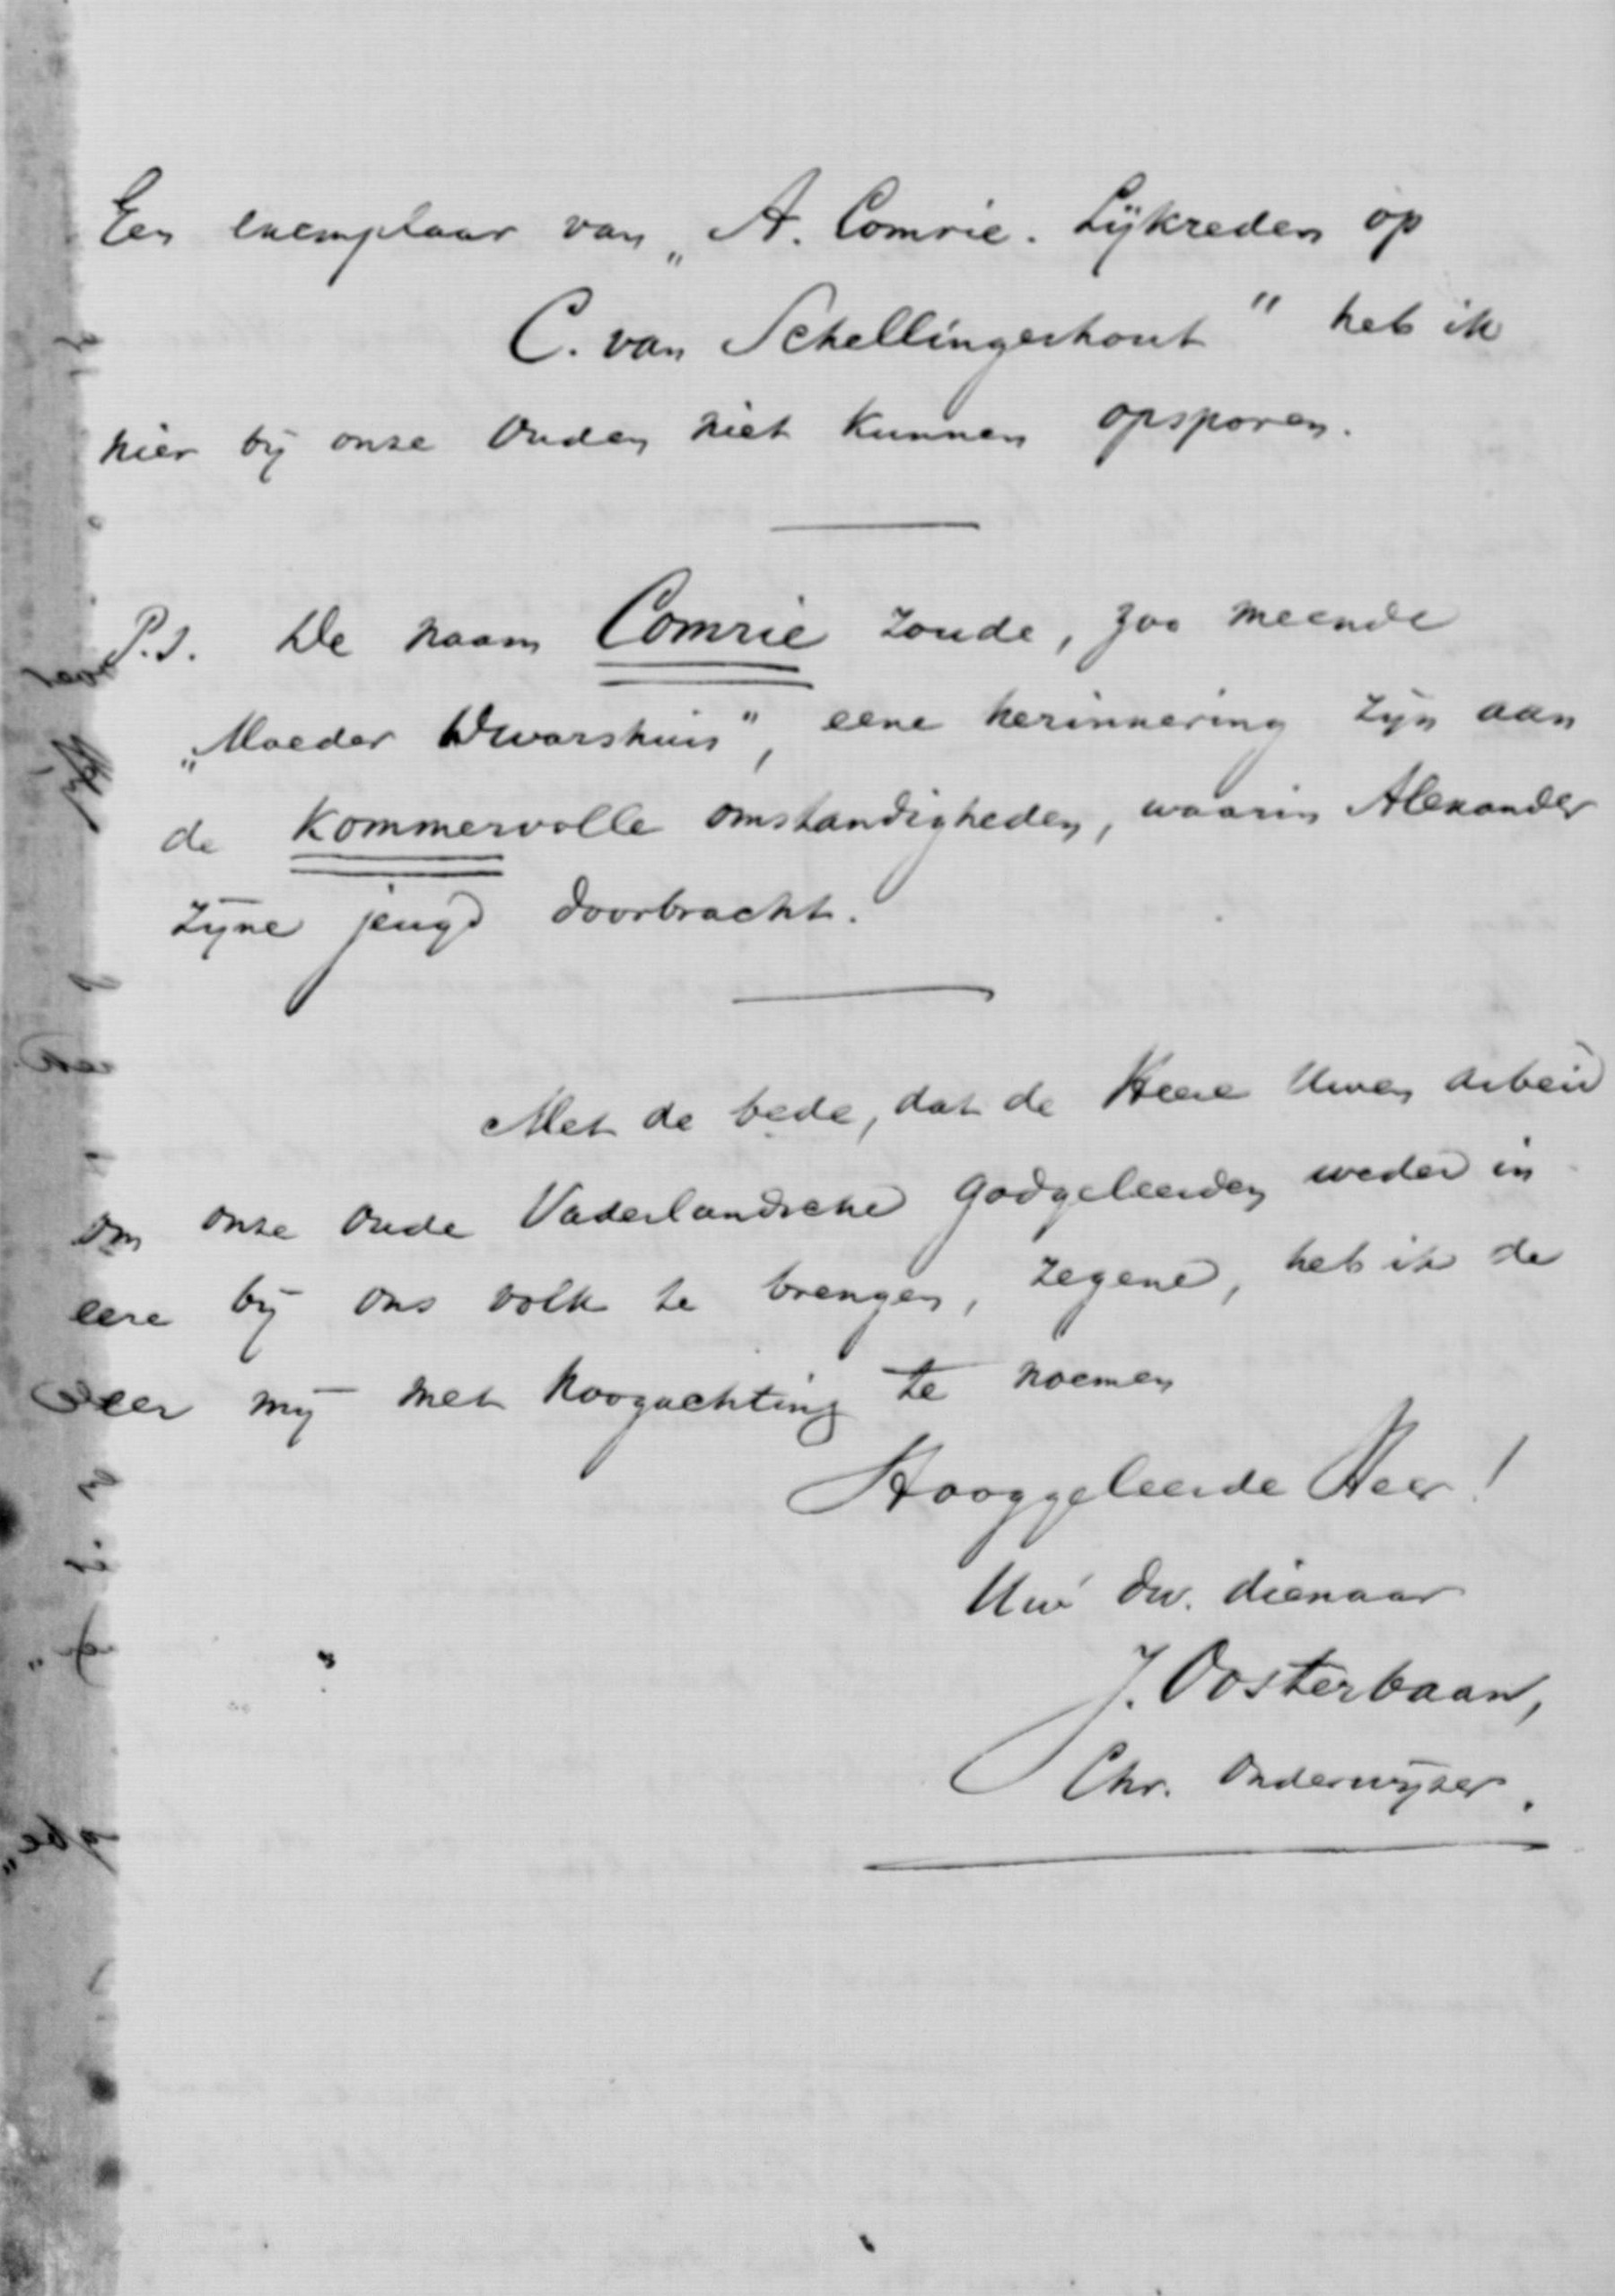 Een exemplaar van „A. Comrie. Lijkreden op
C. van Schellingerhout" heb ik
hier bij onze Ouden niet kunnen opsporen.
P.S. De naam Comrie zoude, zoo meende
„Moeder Dwarshuis", eene herinnering zijn aan
de kommervolle omstandigheden, waarin Alexander
zijne jeugd doorbracht.
Met de bede, dat de Heere Uwen arbeid
om onze oude Vaderlandsche godgeleerden weder in
eere bij ons volk te brengen, zegene, heb ik de
eer mij met hoogachting te noemen
Hooggeleerde Heer!
Uw dw. dienaar
J. Oosterbaan,
Chr. Onderwijzer.